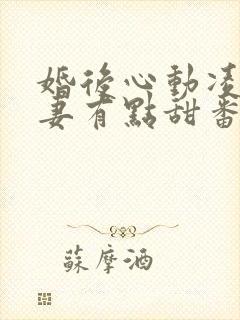 婚後心動凌
妻有點甜番
蘇摩酒